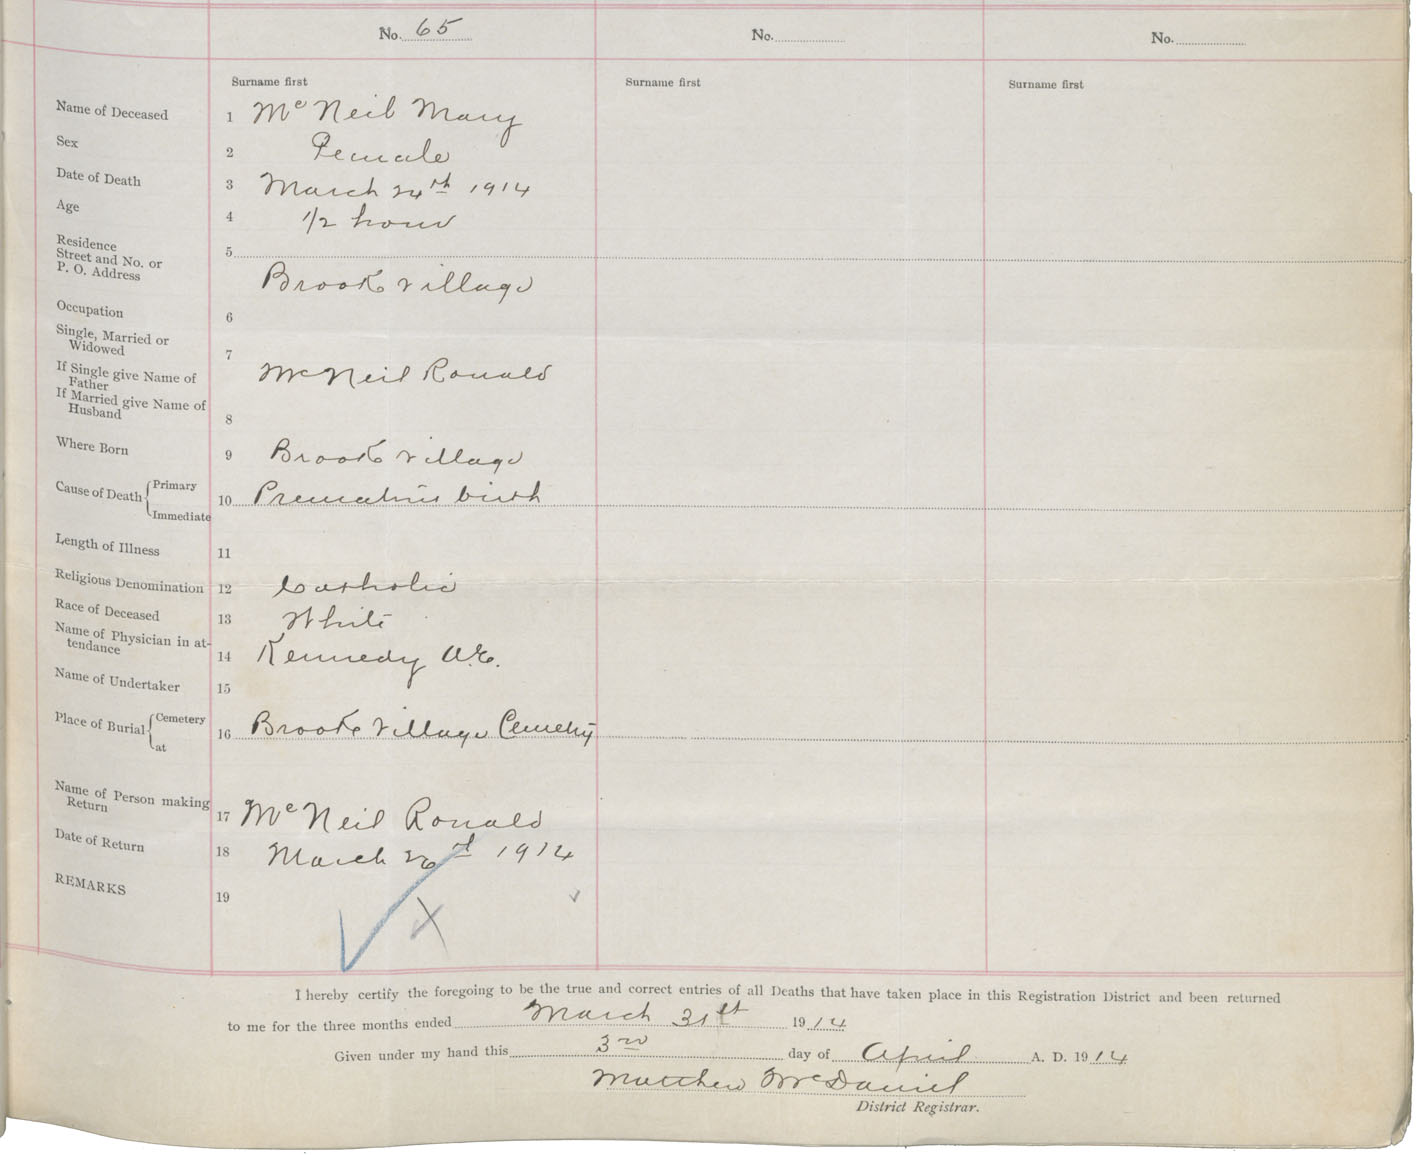 No. 65
No.
No.
Surname first
Surname first
Surname first
Name of Deceased 1 Mc Neil Mary
Sex 2 Female
Date of Death 3 March 24th 1914
Age 4 1/2 hour
Residence
Street and No. or
P. O. Address
5
Brook Village
Occupation 6
Single, Married or
Widowed
7
If Single give Name of
Father
McNeil Ronald
If Married give Name of
Husband
8
Where Born 9 Brook Village
Cause of Death { Primary
Immediate
10 Premature birth
Length of Illness 11
Religious Denomination 12 Catholic
Race of Deceased 13 White
Name of Physician in at-
tendance
14 Kennedy A.E.
Name of Undertaker 15
Place of Burial { Cemetery
at
16 Brook Village Cemetery
Name of Person making
Return
17 Mc Neil Ronald
Date of Return 18 March 26th 1914
REMARKS 19
I hereby certify the foregoing to be the true and correct entries of all Deaths that have taken place in this Registration District and been returned
to me for the three months ended March 31st 1914
Given under my hand this 3rd day of April A. D. 1914
Matthew McDaniel
District Registrar.